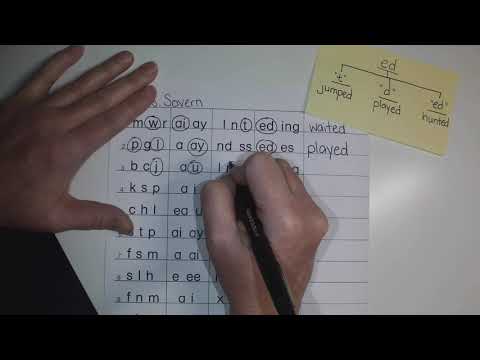 ed
"t" "d" "ed"
jumped played hunted
Savern
m w r ai ay l n t ed ing waited
2. p g l a ay nd ss ed es played
3. b c j a u
4. k s p a i
c h l ea u
s t p ai ay
7. f s m a ai
8. s l h e ee
9. f n m a i x